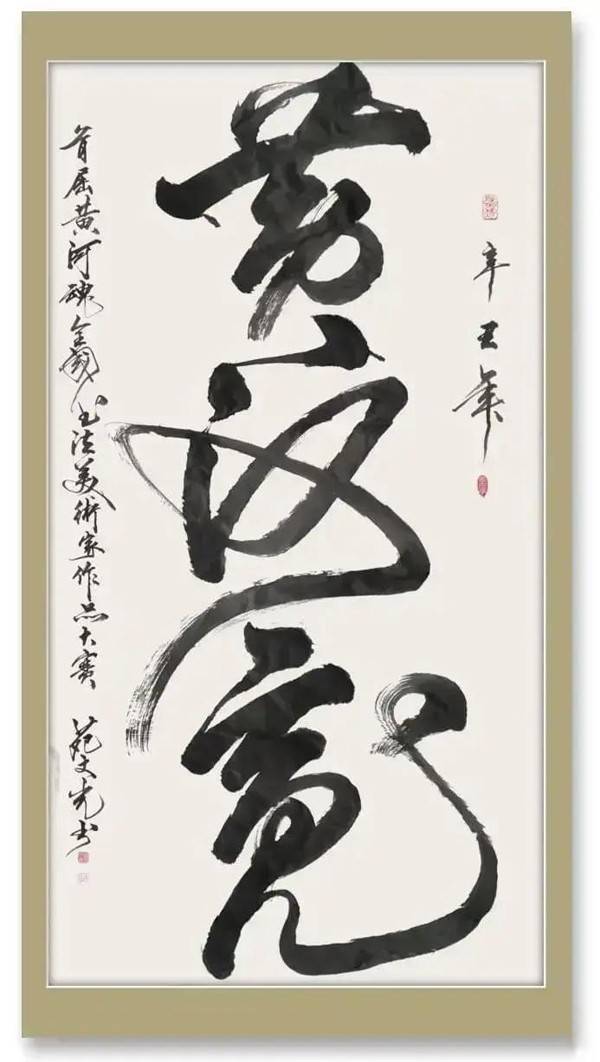 辛丑年
黄河魂
首届黄河魂全國书法美術家作品大賽 范文光书